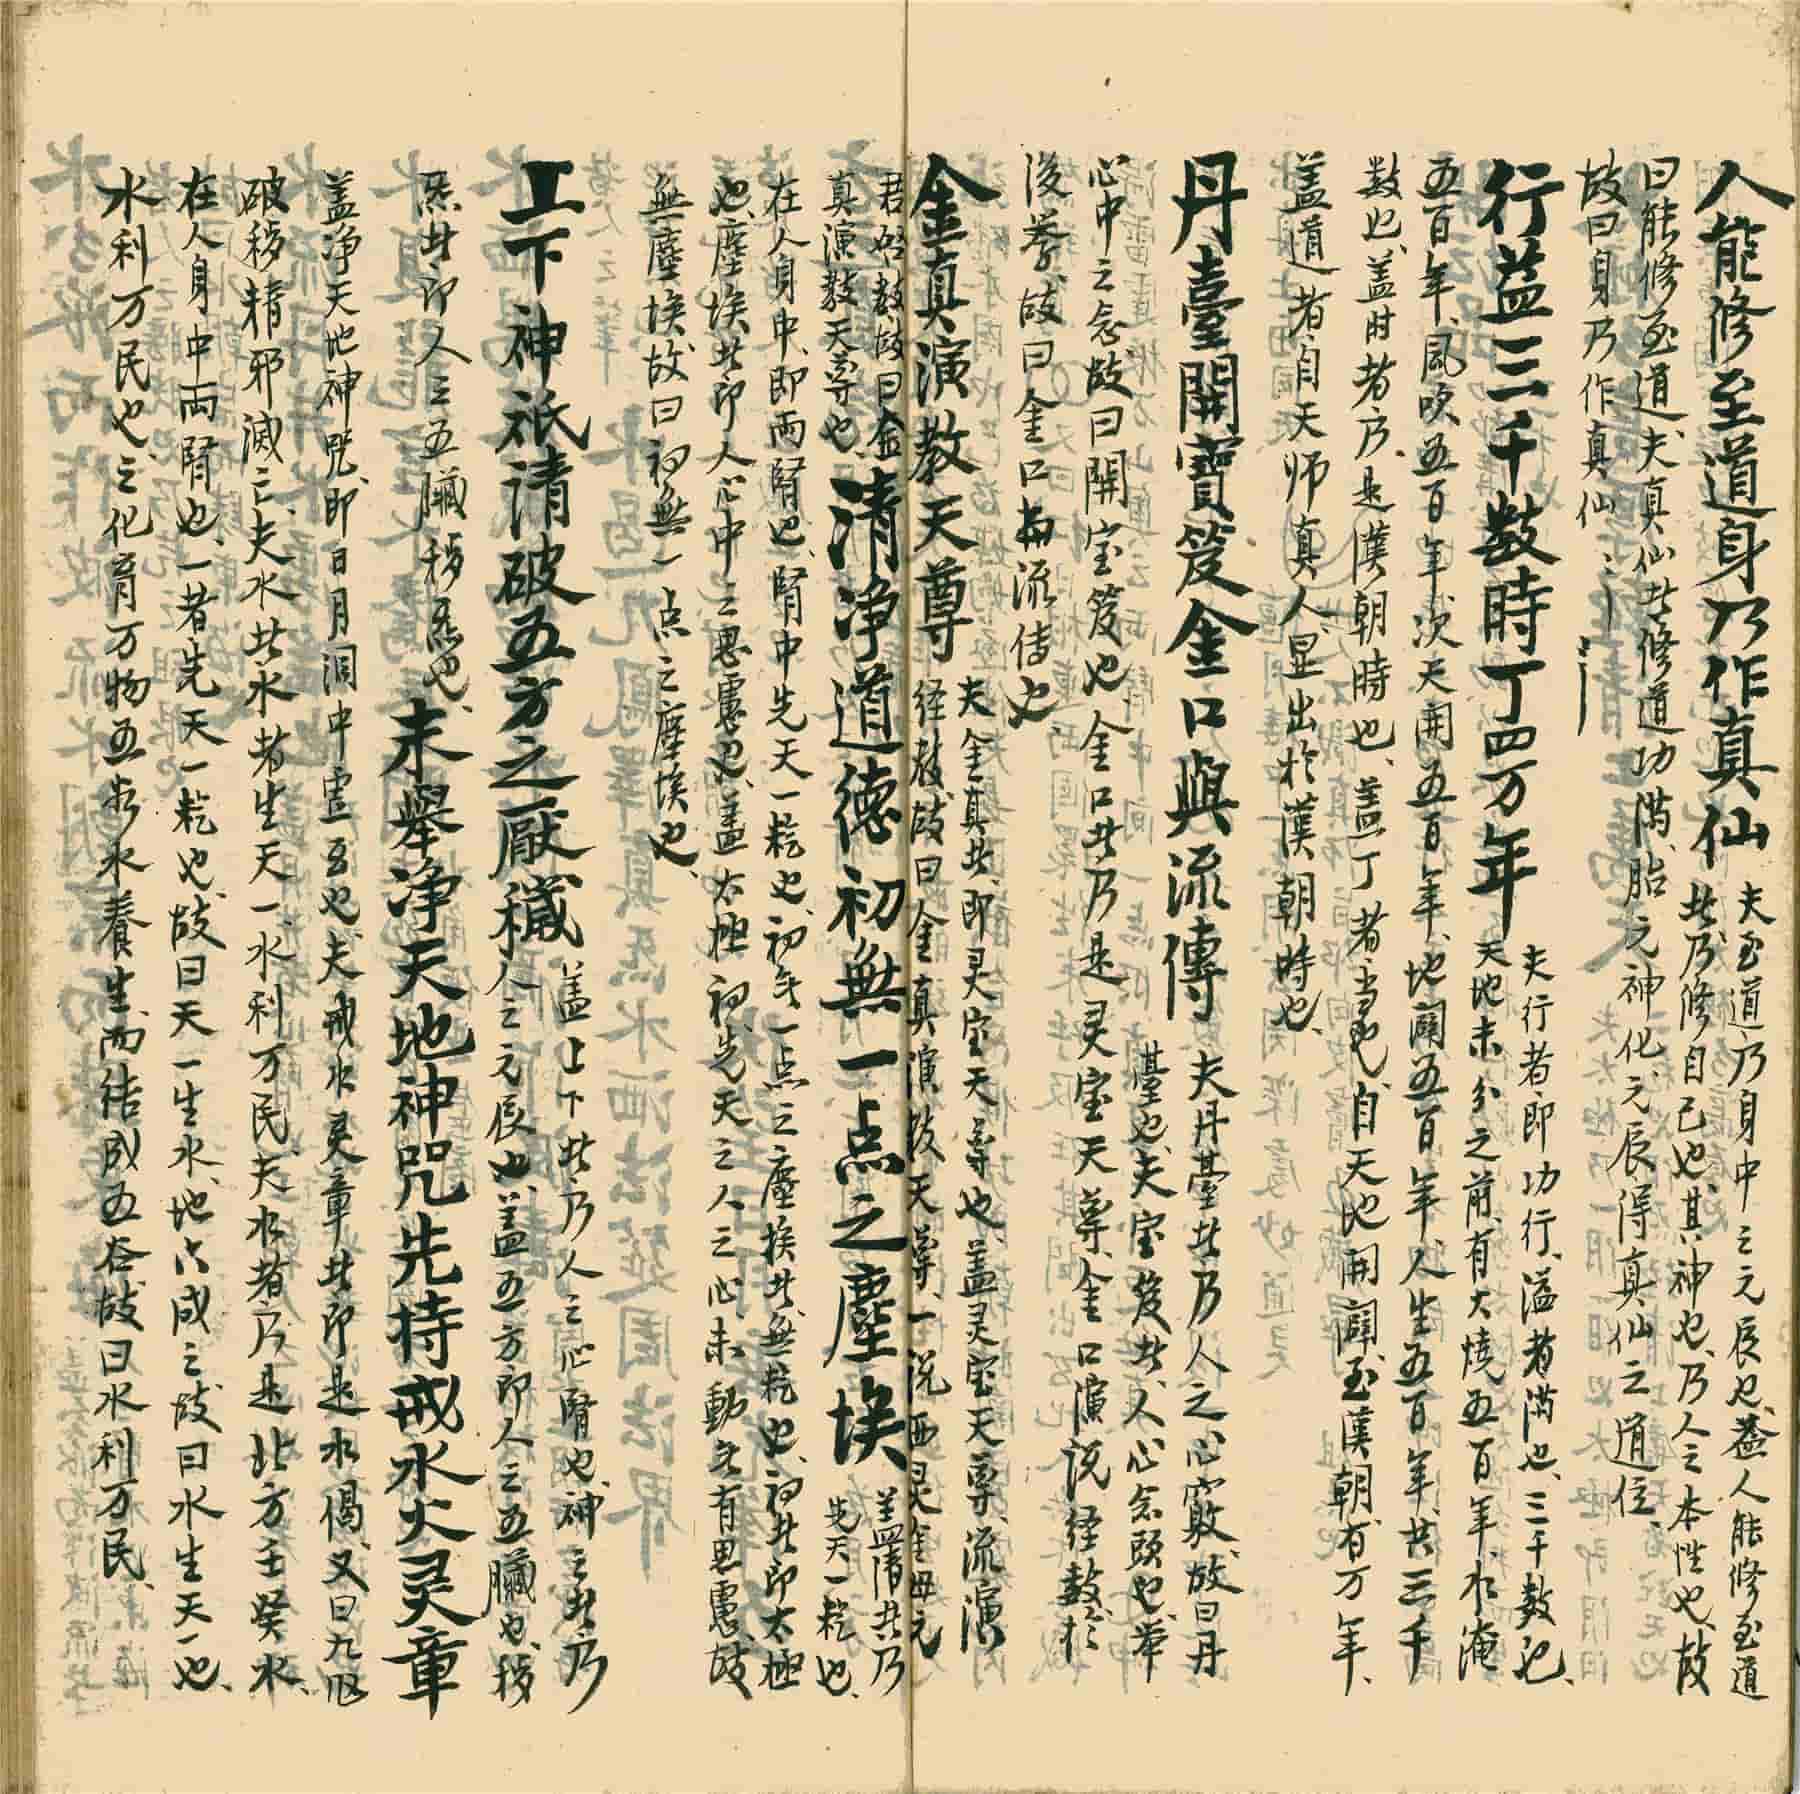 人能修至道身乃作真仙
夫至道乃身中之元辰也蓋人能修至道
此乃修自己也其神也乃人之本性也故
曰能修至道夫真仙此修道功满胎元神化元辰得真仙之道位
故曰身乃作真仙
行益三千数時丁四万年
夫行者即功行溢者满也三千数也
天地未分之前有大燒五百年水淹
五百年風吹五百年次天開五百年地闢五百年人生五百年共三千
数也蓋时者乃是漢朝時也蓋丁者当也自天地開闢至漢朝有万年
蓋道者自天师真人显出於漢朝時也
丹臺開寶笈金口與流傳
夫丹臺此乃人之心竅故曰丹
臺也夫宝笈此人心念頭也举
心中之念故曰開宝笈也金口此乃是灵宝天尊金口演説经教於
後学故曰金口流传也
金真演教天尊
夫金真此即灵宝天尊也蓋灵宝天尊流演
经教故曰金真演教天尊一说西灵金母元
君始教故曰金
真演教天尊也
清净道德初無一点之塵埃
蓋清此乃
先天一炁也
在人身中即兩腎也腎中先天一炁也初无一点之塵埃此無炁也初此即太極
也塵埃此即人心中之思慮也蓋太極初先天之人之心未動无有思慮故
無塵埃故曰初無一点之塵埃也
工下神祇清破五方之厭穢
蓋上下此乃人之心腎也神之此乃
人之元辰也蓋五方即人之五臟也秽
炁此即人之五臟秽炁也
未舉净天地神咒先持戒水火灵章
蓋净天地神咒即日月洞中虚玄也夫戒水灵章此即是水偈又曰九鳳
破秽精邪滅亡夫水此水者生天一水利万民夫水者乃是北方壬癸水
在人身中兩腎也一者先天一炁也故曰天一生水地六成之故曰水生天一也
水利万民也之化育万物五步水養生而结成五谷故曰水利万民